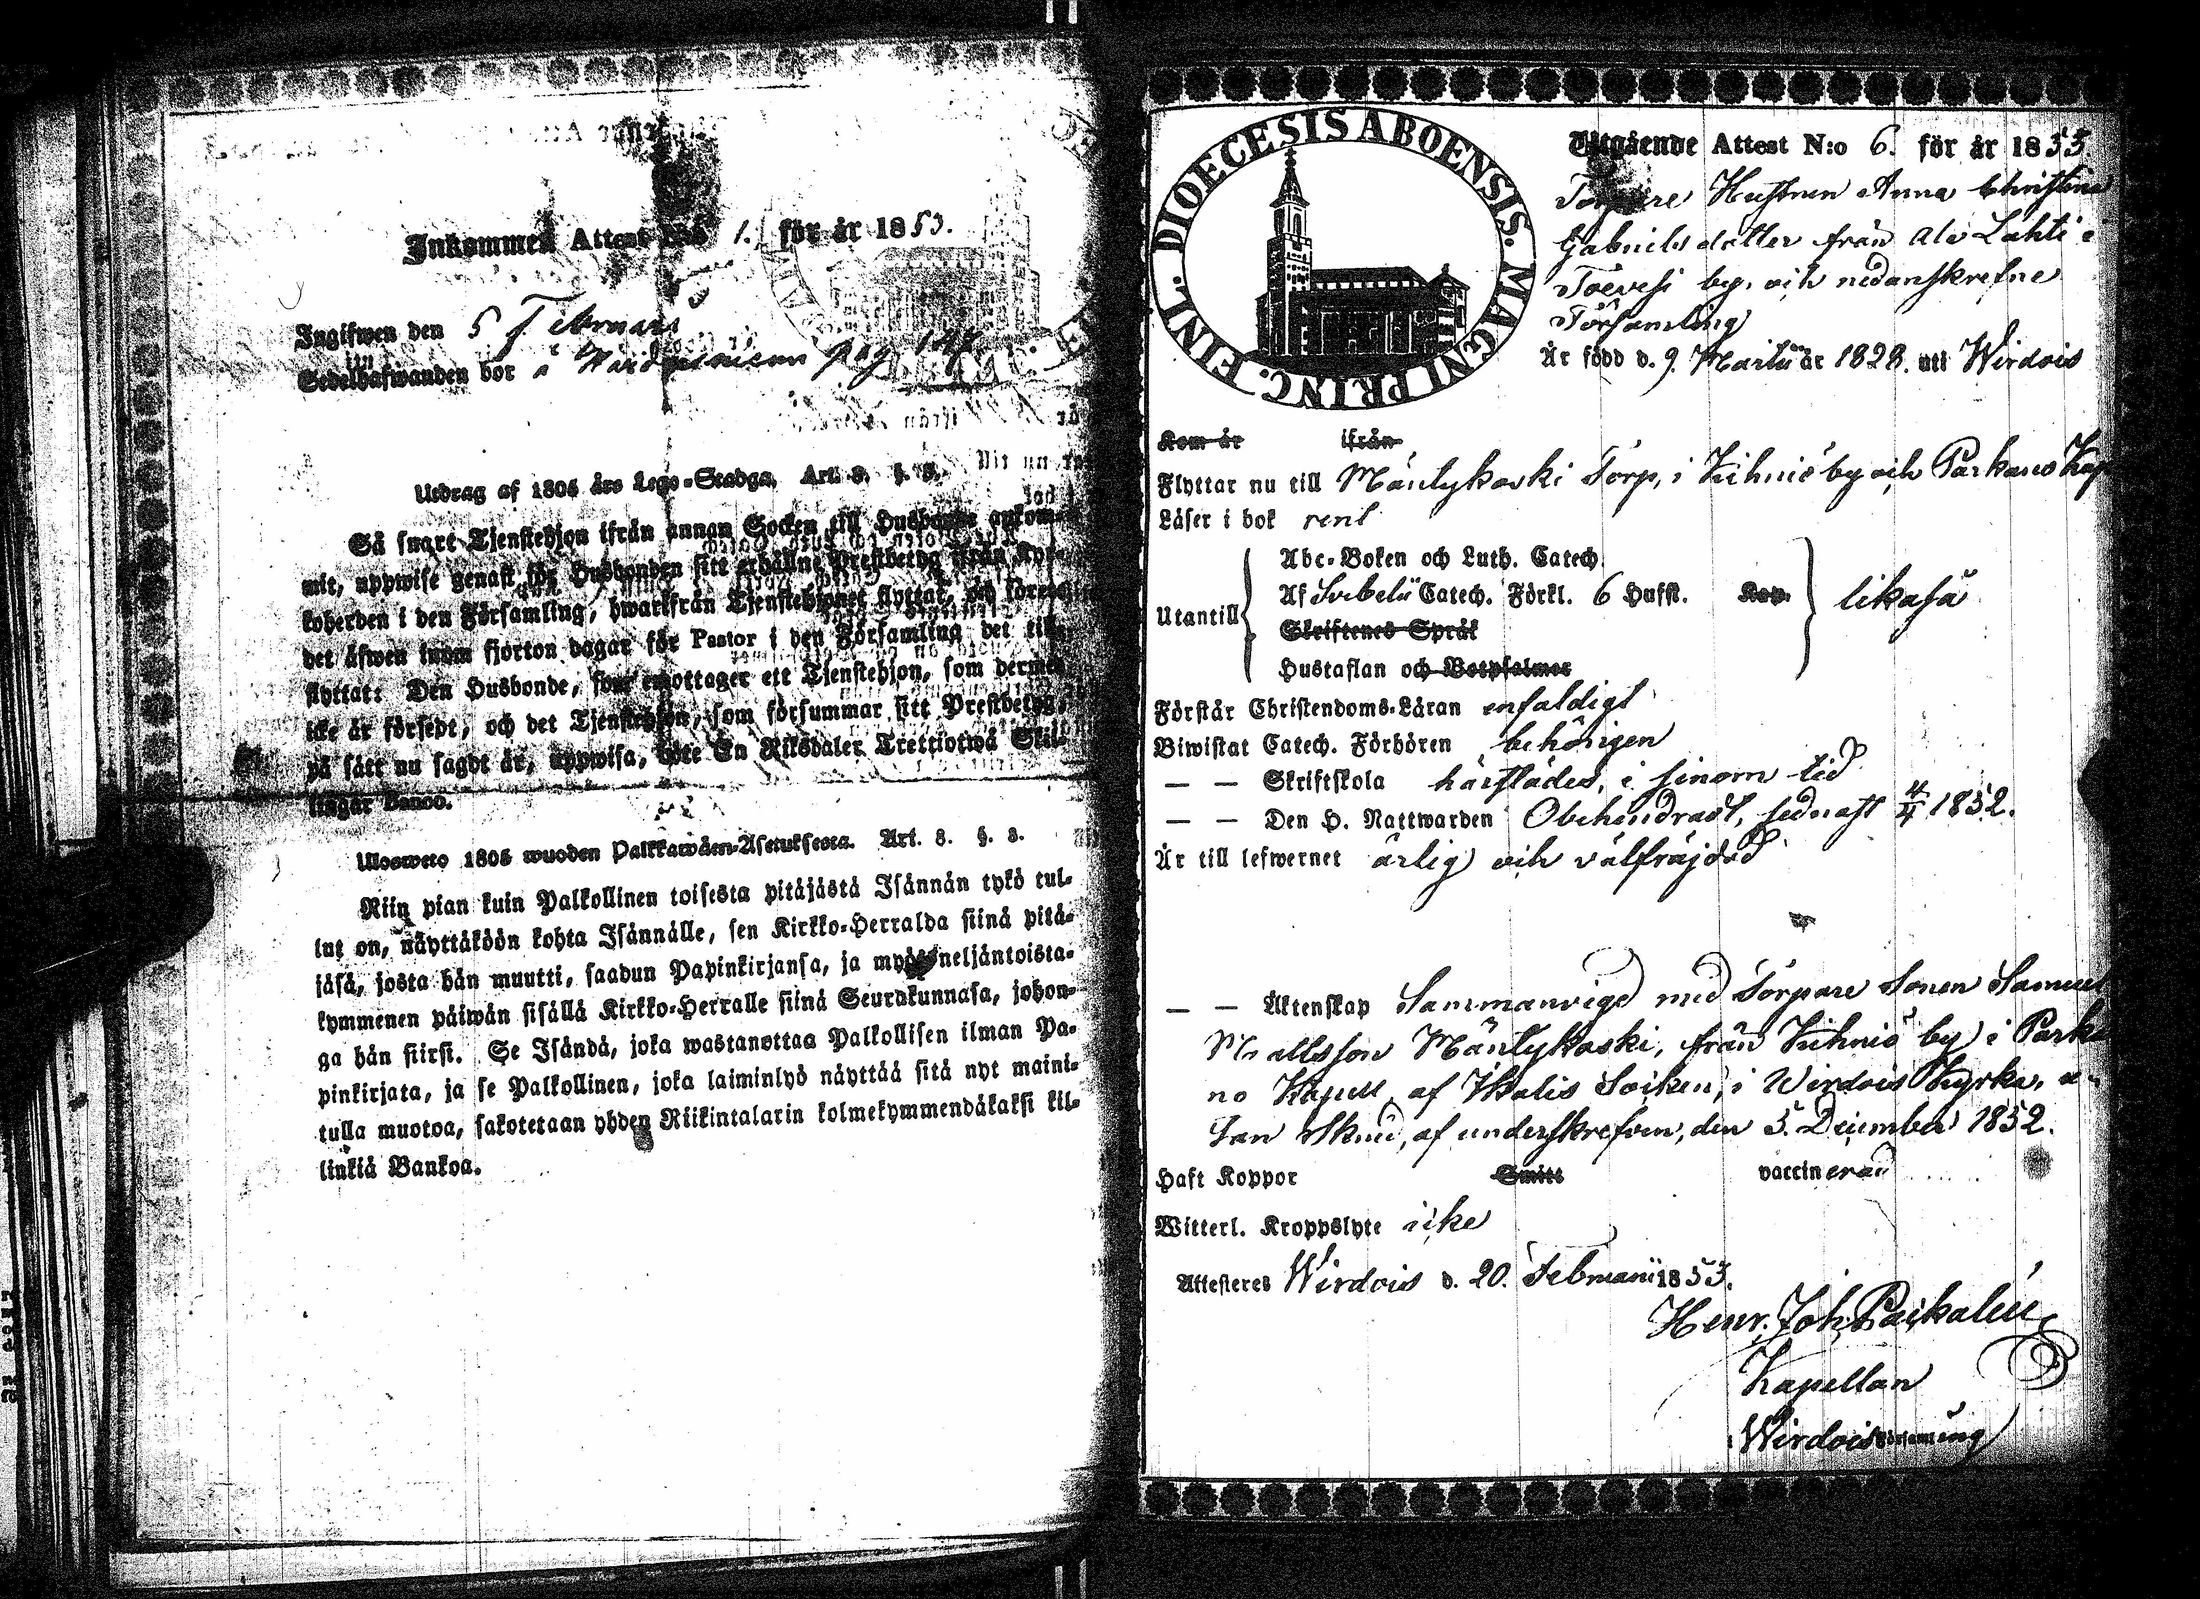 Inkommen Attest N:o 1. för år 1853.
Ingifwen den 5 Februari
Sedelhafwanden bor å pag 148
Utdrag af 1805 års Lego-Stadga. Art. 8. §. 3.
Så snart Tjenstehjon ifrån annan Socken till Husbonde ankom-
mit, uppwise genast för Husbonden sitt erhållne Prestbetyg ifrån Kyr-
koherden i den Församling, hwarifrån Tjenstehjonet flyttat, och förete
det äfwen inom fjorton dagar för Pastor i den Församling det till-
flyttat: Den Husbonde, som emottager ett Tjenstehjon, som dermed
icke är försedt, och det Tjenstehjon, som försummar sitt Prestbetyg,
på sätt nu sagdt är, uppwisa, böte En Riksdaler Trettiotwå Skil-
lingar Banco.
Ulosweto 1805 wuoden Palkkawäen-Asetuksesta. Art. 8. §. 3.
Niin pian kuin Palkollinen toisesta pitäjästä Isännän tykö tul-
lut on, näyttäköön kohta Isännälle, sen Kirkko-Herralda siinä pitä-
jäsä, josta hän muutti, saadun Papinkirjansa, ja myös neljäntoista-
kymmenen päiwän sisällä Kirkko-Herralle siinä Seurakunnasa, johon-
ga hän siirsi. Se Isändä, joka wastanottaa Palkollisen ilman Pa-
pinkirjata, ja se Palkollinen, joka laiminlyö näyttää sitä nyt maini-
tulla muotoa, sakotetaan yhden Riikintalarin kolmekymmendäkaksi kil-
linkiä Bankoa.
DIOECESIS ABOENSIS. MAGNI PRINC. FINL.
Utgående Attest N:o 6. för år 1853.
Torpare Hustrun Anna Christina
Gabriels dotter från Ala Lahti i
Toevesi by, och nedanskrefne
Församling
Är född d. 9. Martii år 1828. uti Wirdois
Kom år ifrån
Flyttar nu till Mäntykoski Torp, i Kihniö by och Parkano Kap
Läser i bok rent
Utantill
Abc-Boken och Luth. Catech.
Af Svebelii Catech. Förkl. 6 Hufst. Kap.
Skriftenes Språk
Hustaflan och Botpsalmer
likaså
Förstår Christendoms-Läran enfaldigt
Biwistat Catech. Förhören behörigen
— — Skriftskola härstädes, i sinom tid
— — Den H. Nattwarden Obehindradt, sednast 4/4 1852.
Är till lefwernet ärlig och välfräjdad
— — Äktenskap Sammanvigd med Torpare Sonen Samuel
Mattsson Mäntykoski, från Kihniö by i Parka
no Kapell, af Ikalis Socken, i Wirdois Kyrka,
af underskrefven, den 5. December 1852.
Haft Koppor Smitt vaccinerad
Witterl. Kroppslyte icke
Attesteres Wirdois d. 20. Februarii 1853.
Henr. Joh. Paikalén
Kapellan
i Wirdois Församling